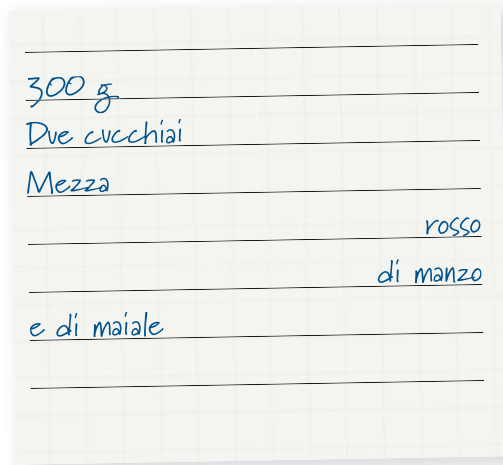 300 g
Due cucchiai
Mezza
rosso
di manzo
e di maiale